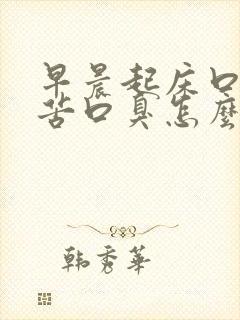 早晨起床口
苦口臭怎麼
韩秀華